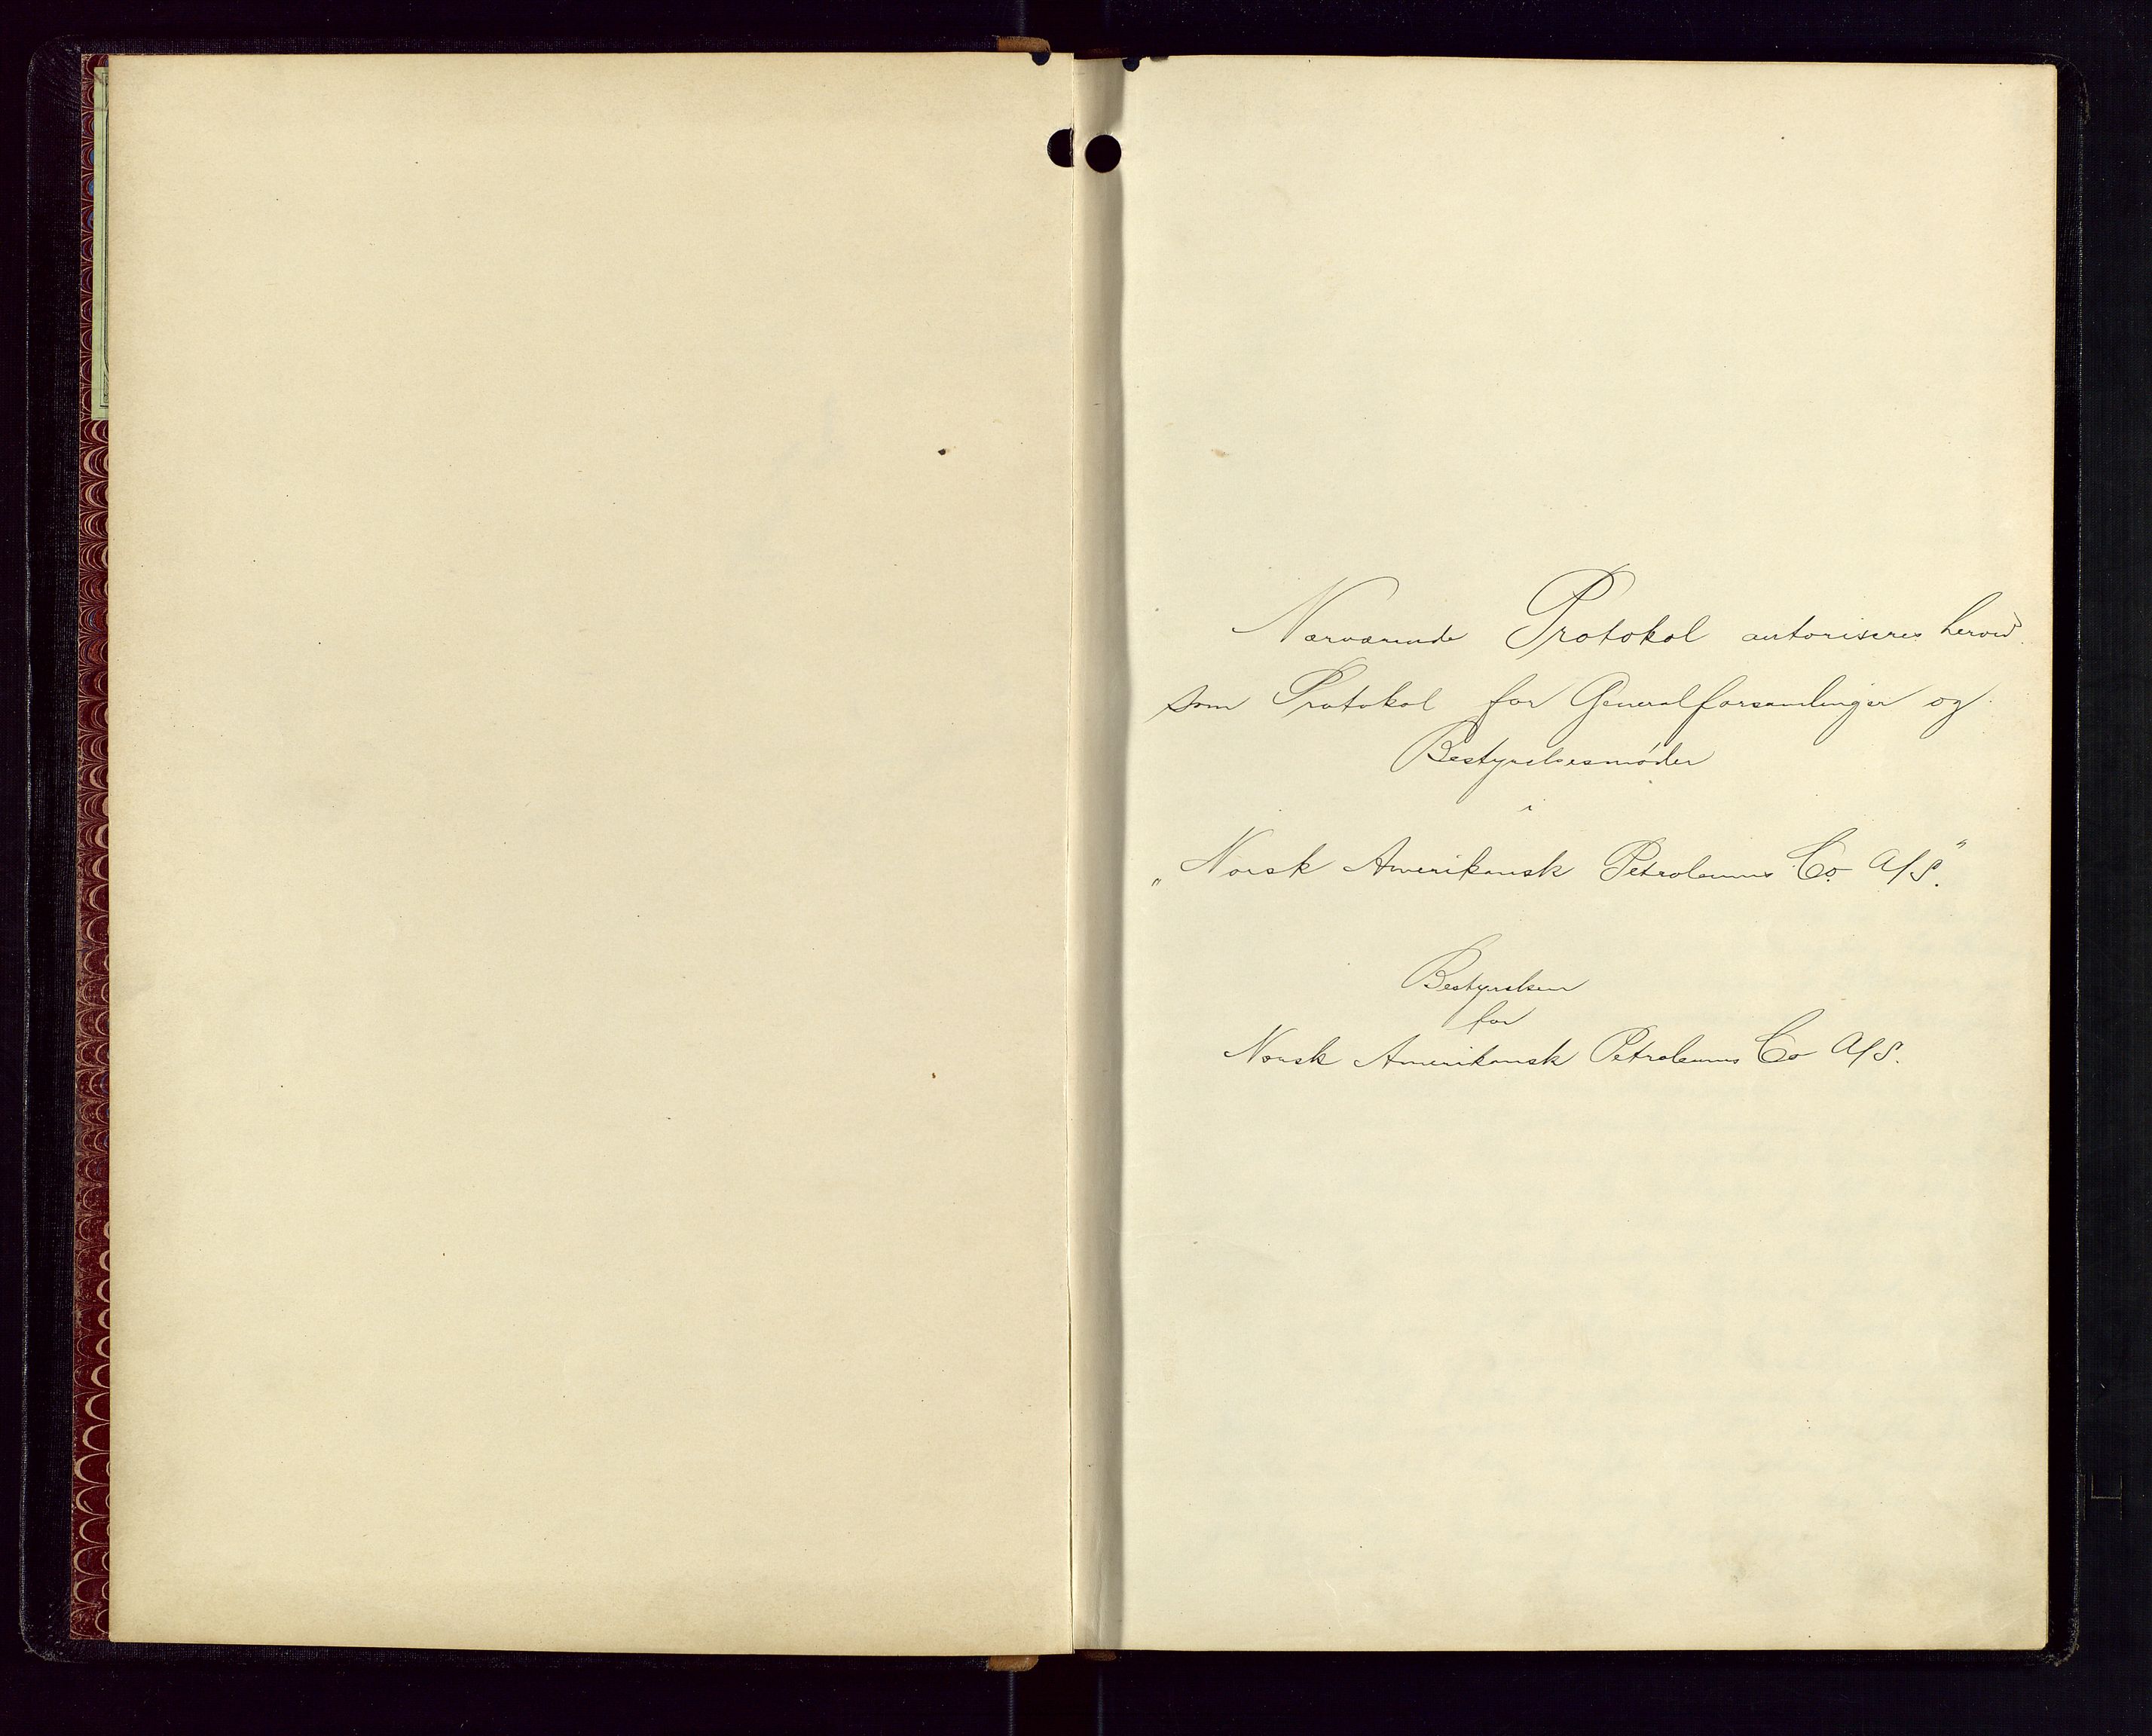 Nærværende Protokol autoriseres herved
som Protokol for Generalforsamlinger og
Bestyrelsesmøder
i
„Norsk Amerikansk Petroleums Co. A/S."
Bestyrelsen
for
Norsk Amerikansk Petroleums Co A/S.